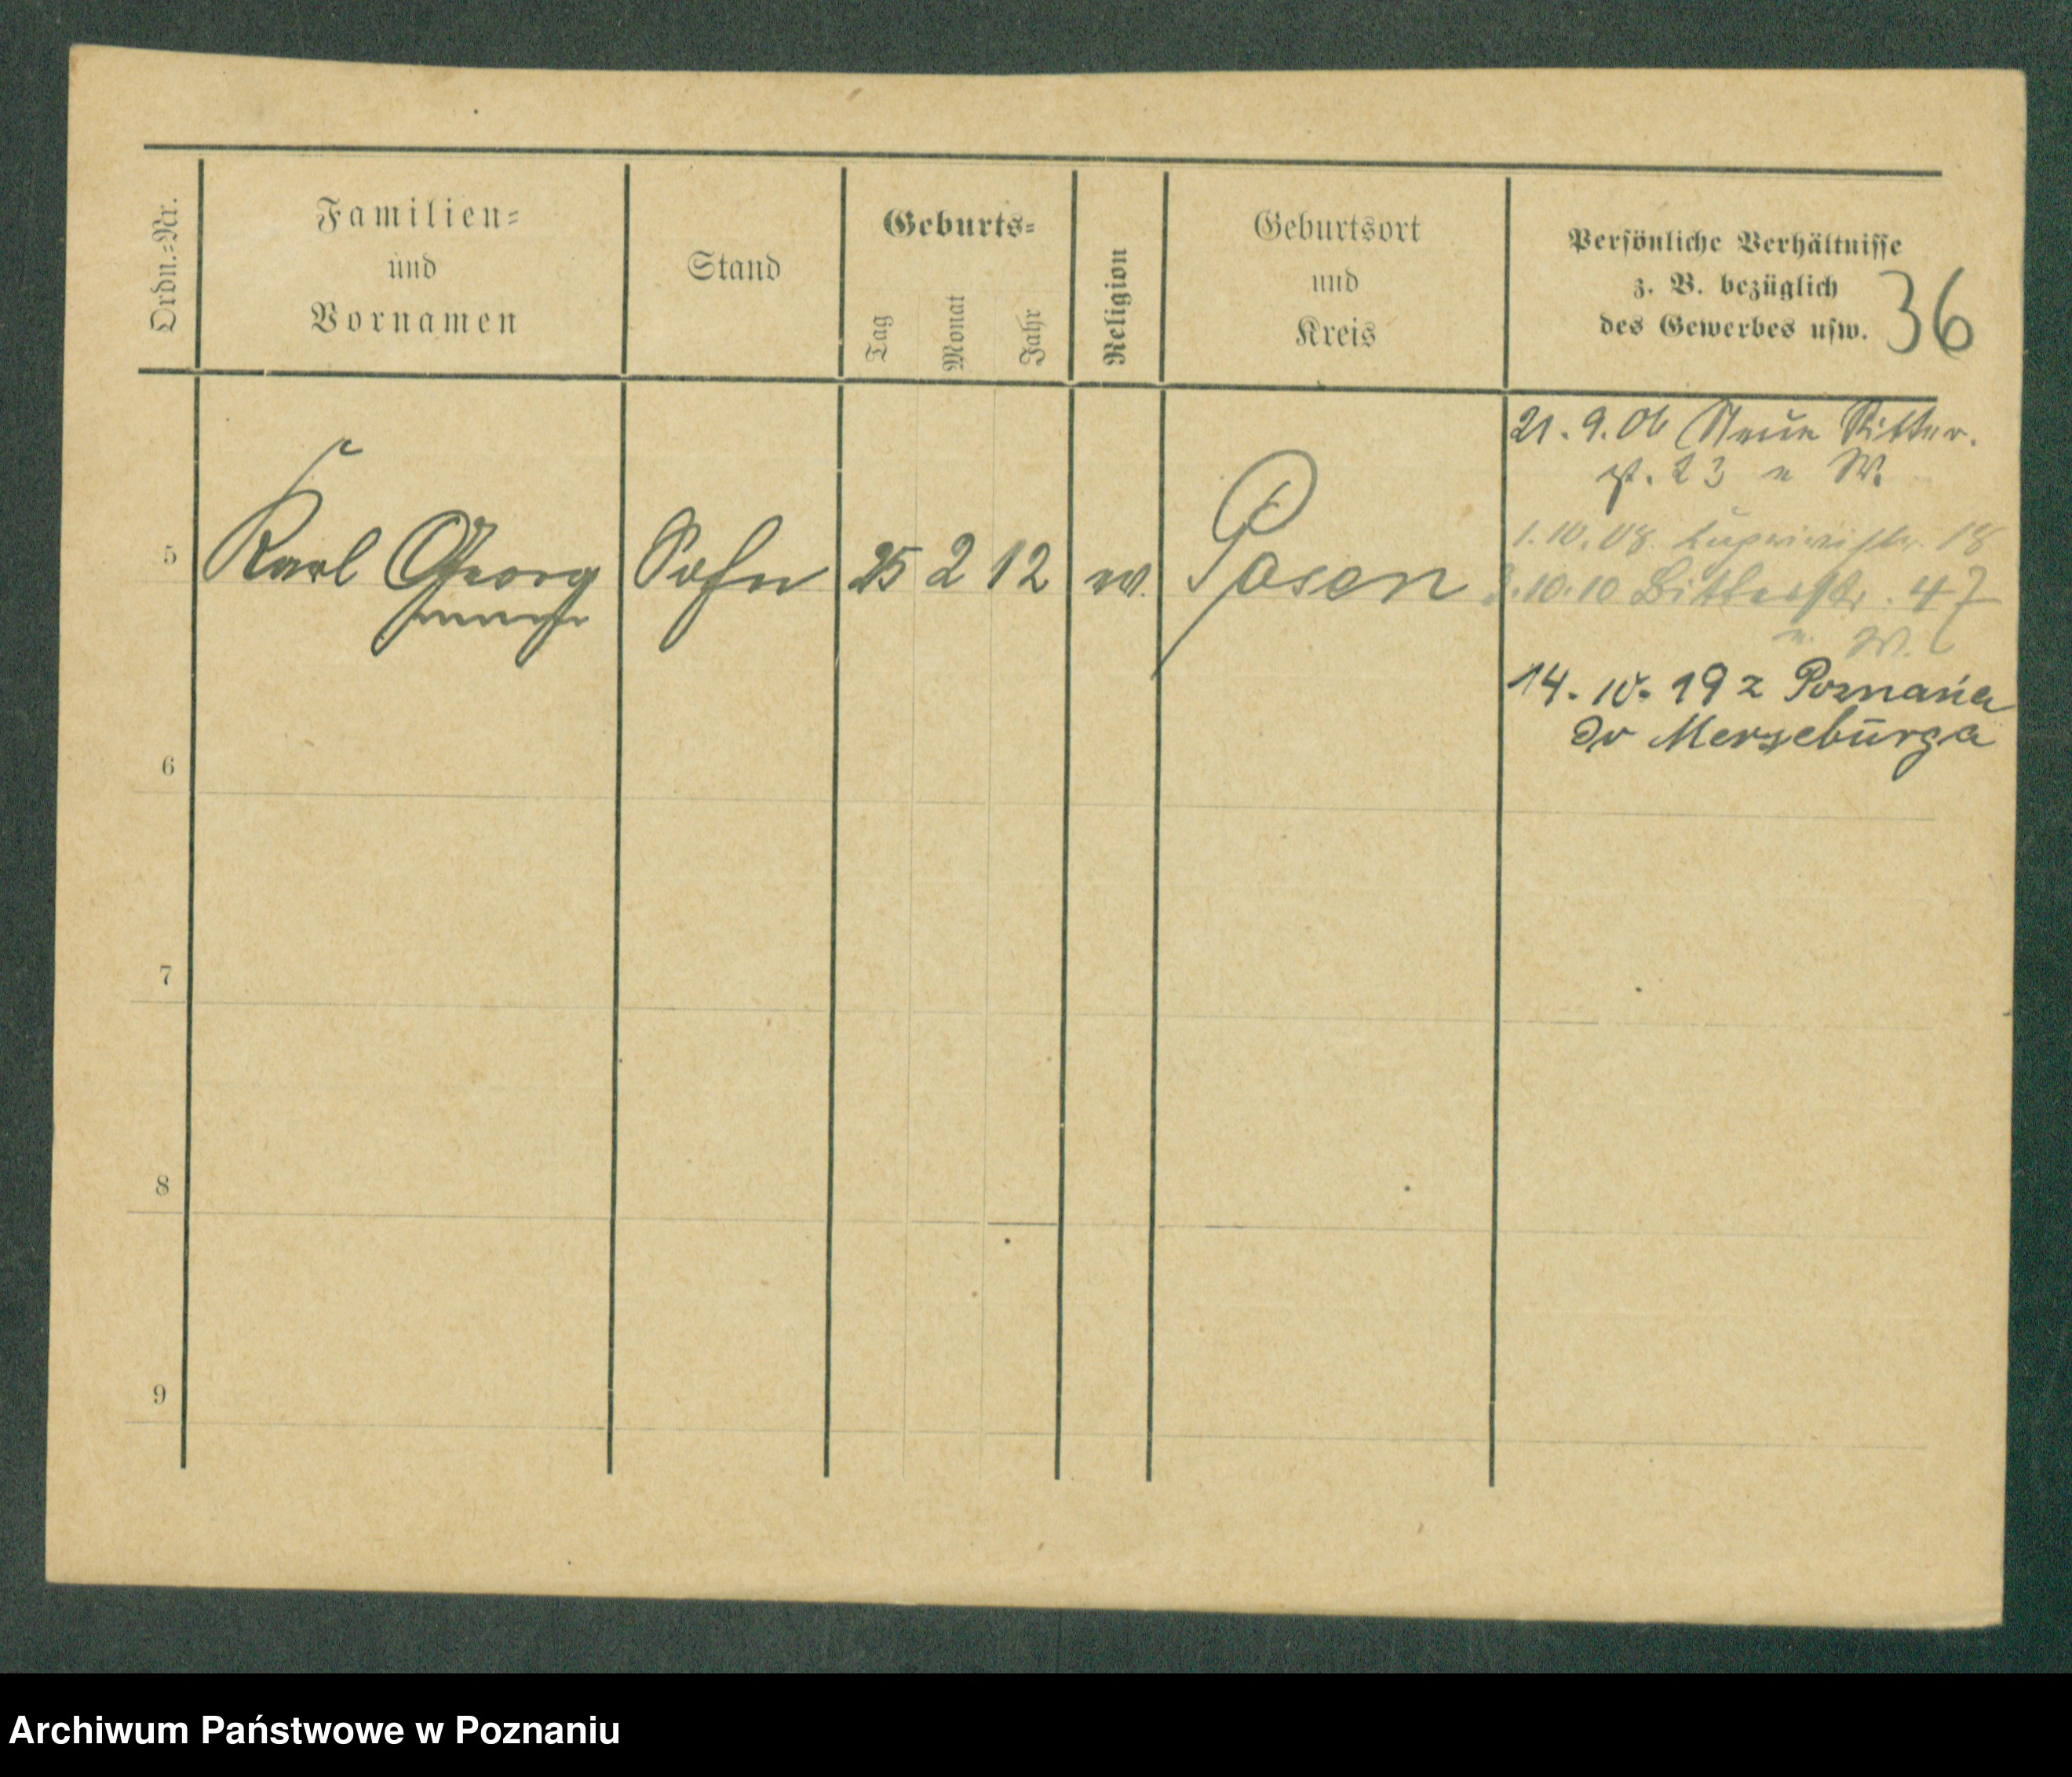 Ordn.=Nr.
Familien=
und
Vornamen
Stand
Geburts=
Tag
Monat
Jahr
Religion
Geburtsort
und
Kreis
Persönliche Verhältnisse
z. B. bezüglich
des Gewerbes usw.
36
5 Karl Georg Sohn 25 2 12 Posen
21. 9. 06 Neue Ritter.
st. 23 u W.
1. 10. 08 18
10. 10 Bitterstr. 47
u. W.
14. 10. 19 z Poznania
do Merseburga
6
7
8
9
Archiwum Państwowe w Poznaniu